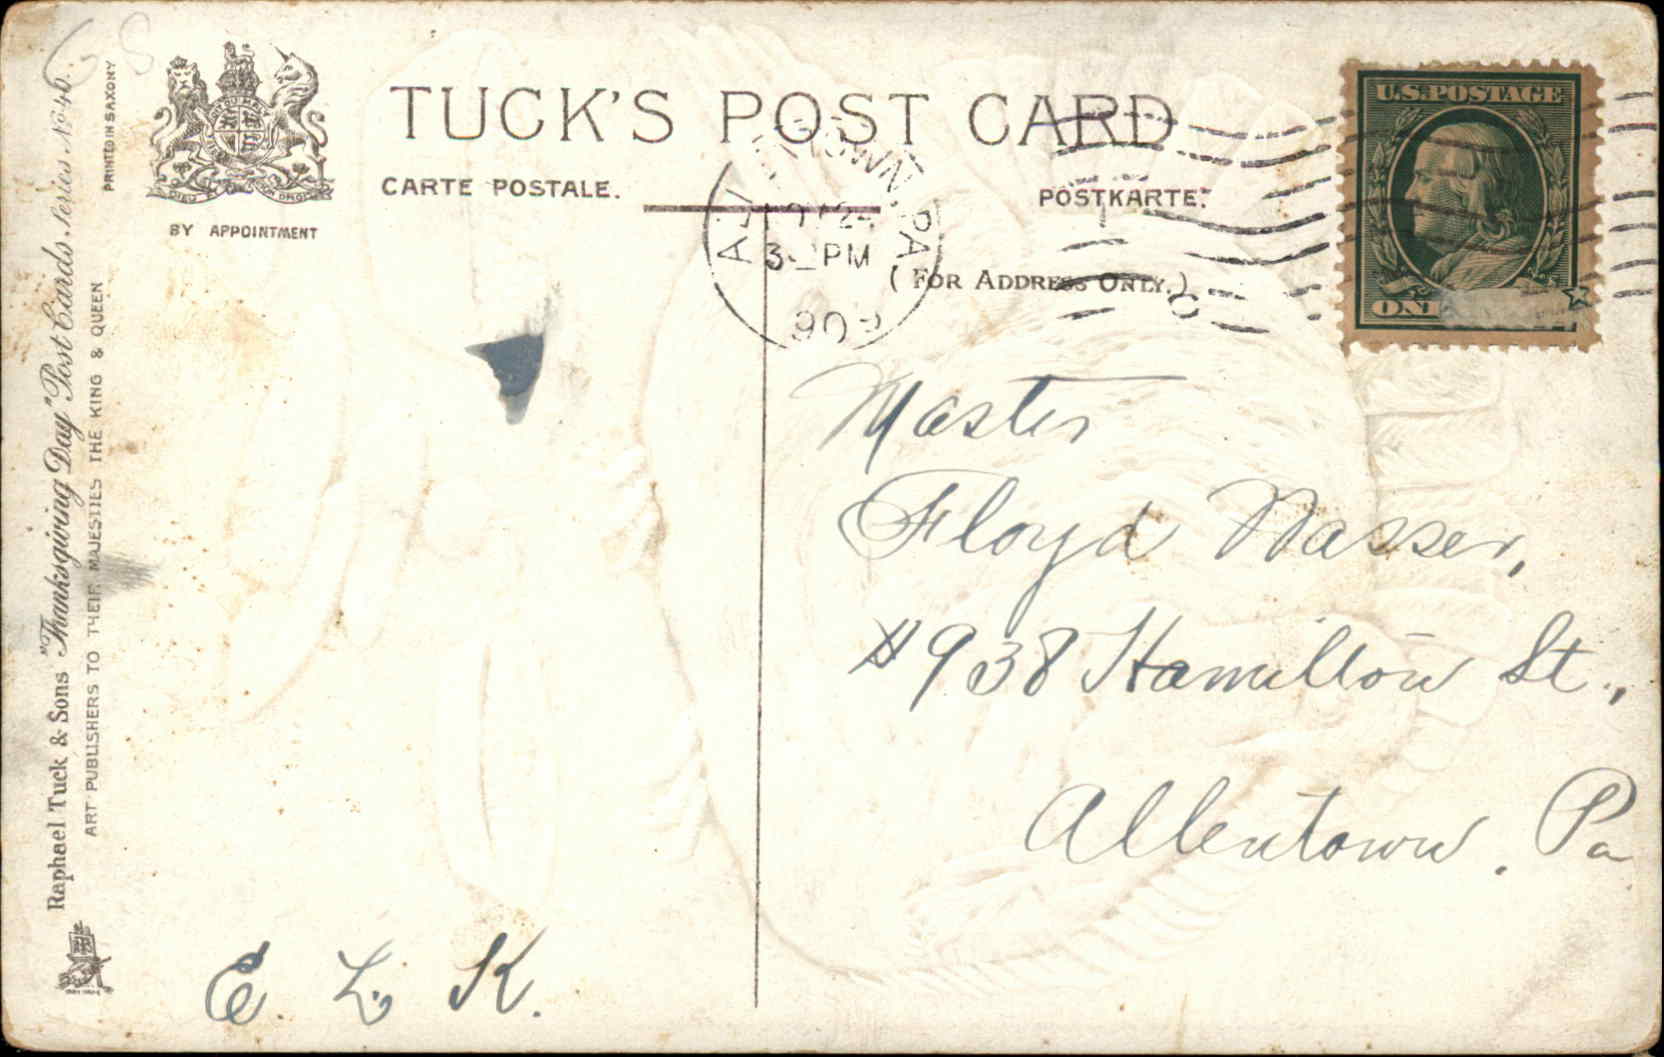 TUCK'S POST CARD
CARTE POSTALE.
POSTKARTE.
BY APPOINTMENT
(FOR ADDRESS ONLY.)
PRINTED IN SAXONY
Raphael Tuck & Sons "Thanksgiving Day" Post Cards Series No. 40.
ART PUBLISHERS TO THEIR MAJESTIES THE KING & QUEEN
U.S. POSTAGE
PA.
3 PM
Master
Floyd Nasser,
#938 Hamilton St.,
Allentown. Pa
E. L. K.